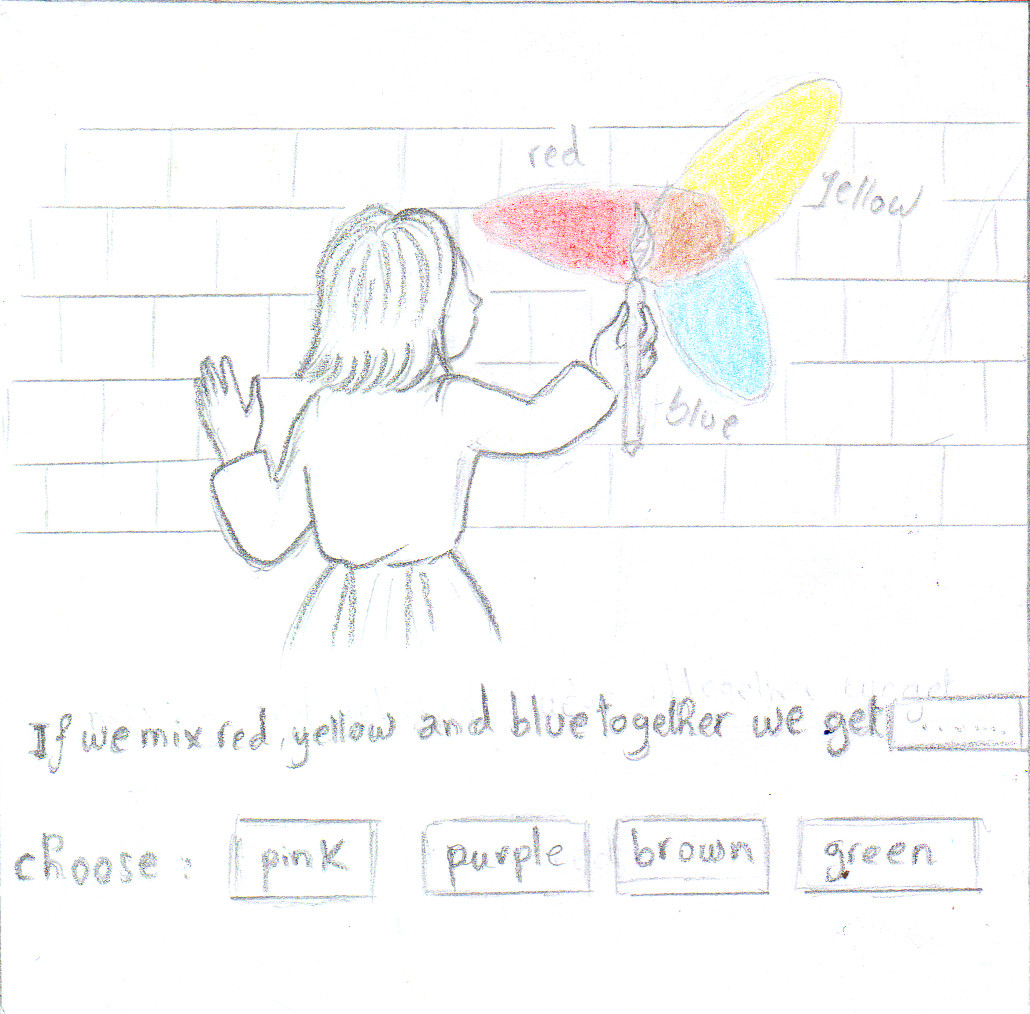 red
yellow
blue
If we mix red, yellow and blue together we get ......
choose : pink purple brown green